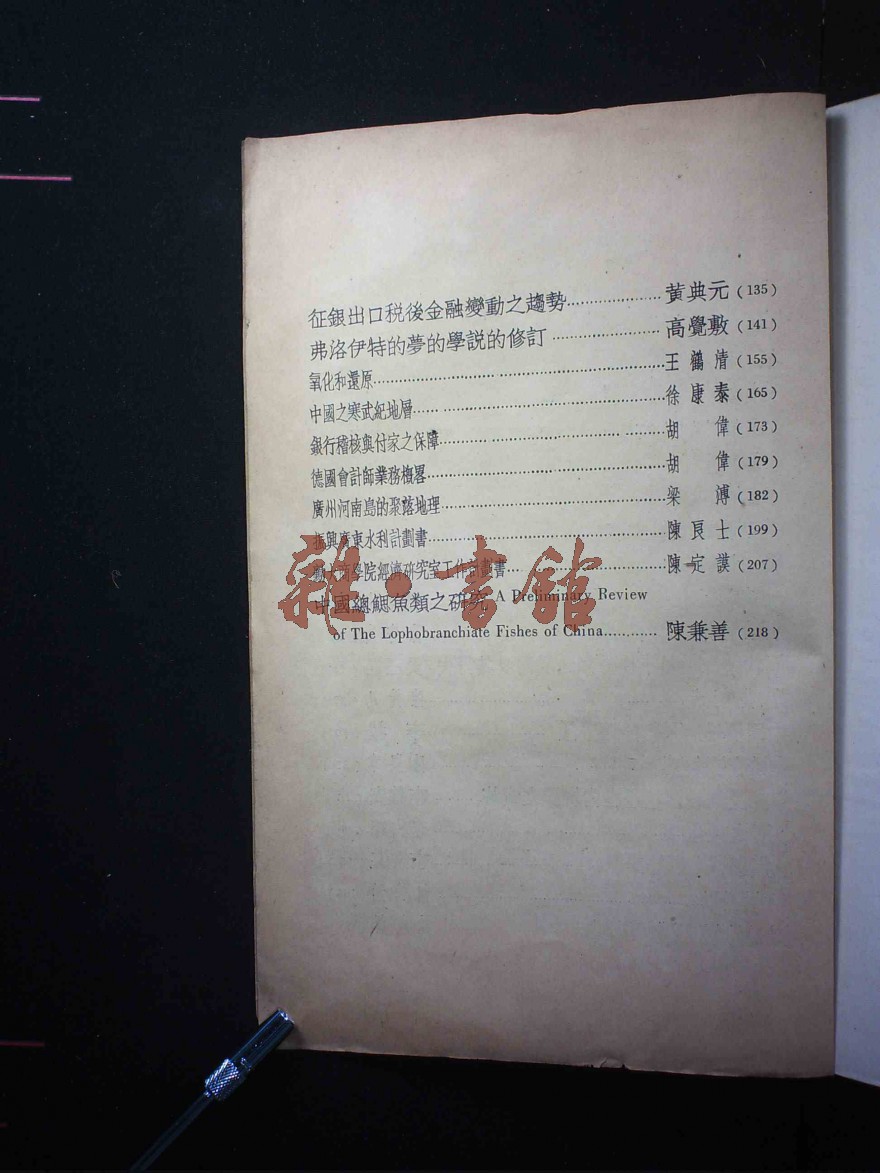 征銀出口稅後金融變動之趨勢 黃典元 (135)
弗洛伊特的夢的學說的修訂 高覺敷 (141)
氧化和還原 王鶴清 (155)
中國之寒武紀地層 徐康泰 (165)
銀行稽核與付家之保障 胡偉 (173)
德國會計師業務概畧 胡偉 (179)
廣州河南島的聚落地理 梁溥 (182)
振興廣東水利計劃書 陳良士 (199)
商學院經濟研究室工作計劃書 陳定謨 (207)
中國總鰓魚類之研究 A Preliminary Review
of The Lophobranchiate Fishes of China 陳兼善 (218)
雜·書館